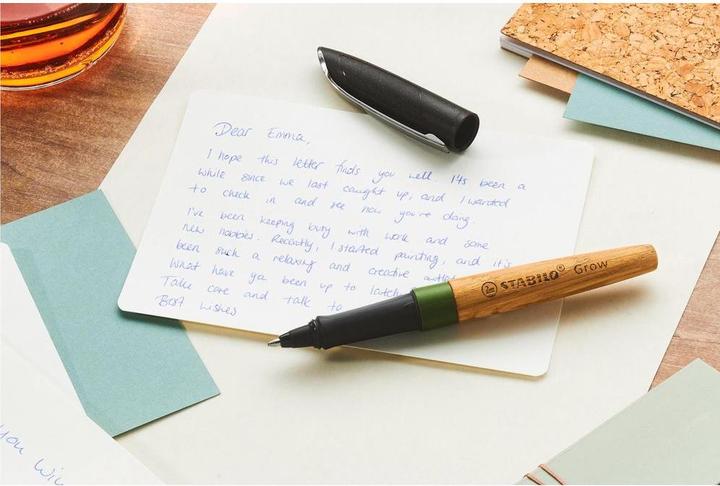 Dear Emma,
I hope this letter finds you well. It's been a
while since we last caught up, and I wanted
to check in and see how you're doing.
I've been keeping busy with work and some
new hobbies. Recently, I started painting, and it's
been such a relaxing and creative
What have ya been up to
Take care and talk to
Best Wishes
STABILO® Grow
you